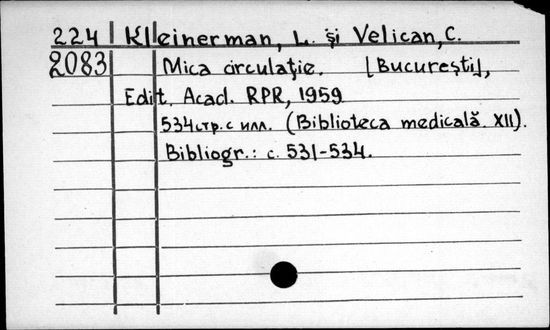 224 Kleinerman, L. și Velican, C.
2083 Mica circulație. [București],
Edit. Acad. RPR, 1959
534 стр. с илл. (Biblioteca medicală. XII).
Bibliogr.: с. 531-534.